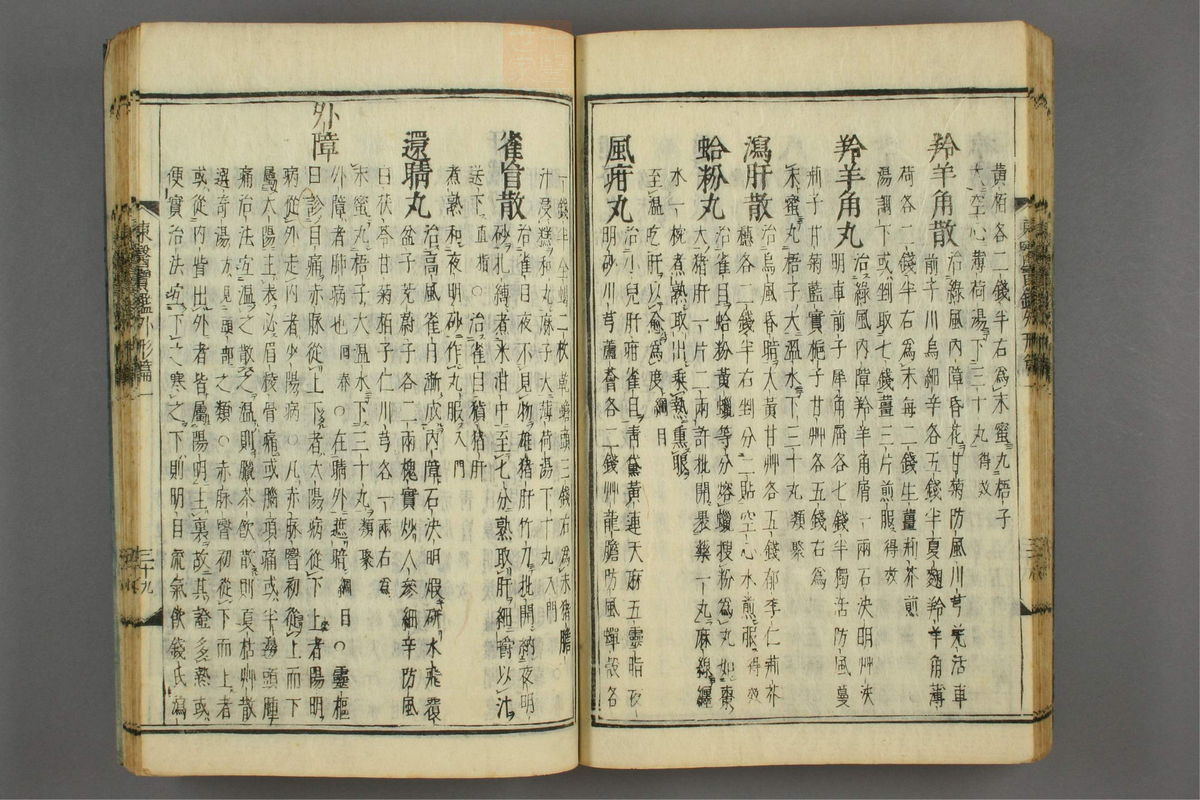 黃栢各二錢半右爲末蜜丸梧子
大空心薄荷湯下三十丸得效
羚羊角散治綠風內障昏花甘菊防風川芎羌活車
前子川烏細辛各五錢半夏麴羚羊角薄
荷各二錢半右爲末每二錢生薑荊芥煎
湯調下或剉取七錢薑三片煎服得效
羚羊角丸治綠風內障羚羊角屑一兩石決明艸決
明車前子犀角屑各七錢半獨活防風蔓
荊子甘菊藍實梔子甘艸各五錢右爲
末蜜丸梧子大溫水下三十丸類聚
瀉肝散治烏風昏暗大黃甘艸各五錢郁李仁荊芥
穗各二錢半右剉分二貼空心水煎服得效
蛤粉丸治雀目蛤粉黃蠟等分熔蠟搜粉爲丸如棗
大猪肝一片二兩許批開裹藥一丸麻線纏
水一椀煮熟取出乘熱熏眼
至溫吃肝以愈爲度綱目
風疳丸治小兒肝疳雀目靑黛黃連天麻五靈脂夜
明砂川芎蘆薈各二錢艸龍膽防風蟬殼各
一錢半全蝎二枚乾蟾頭三錢右爲末猪膽
汁浸糕和丸麻子大薄荷湯下十丸入門
雀盲散治雀目夜不見物雄猪肝竹刀批開納夜明
砂扎縛煮米泔中至七分熟取肝細嚼以汁
送下直指○治雀目猪肝
煮熟和夜明砂作丸服入門
還睛丸治高風雀目漸成內障石決明煅硏水飛覆
盆子茺蔚子各二兩槐實炒人參細辛防風
白茯苓甘菊栢子仁川芎各一兩右爲
末蜜丸梧子大溫水下三十丸類聚
外障
外障者肺病也回春○在睛外遮暗綱目○靈樞
曰診目痛赤脉從上下者太陽病從下上者陽明
病從外走內者少陽病○凡赤脉瞖初從上而下
屬太陽主表必眉稜骨痛或腦項痛或半邊頭腫
痛治法宜溫之散之溫則臘茶飮散則夏枯艸散
選奇湯方見頭部之類○赤脉瞖初從下而上者
或從內眥出外者皆屬陽明主裏故其證多熱或
便實治法宜下之寒之下則明目流氣飮錢氏瀉
東醫寶鑑外形篇一
三十九